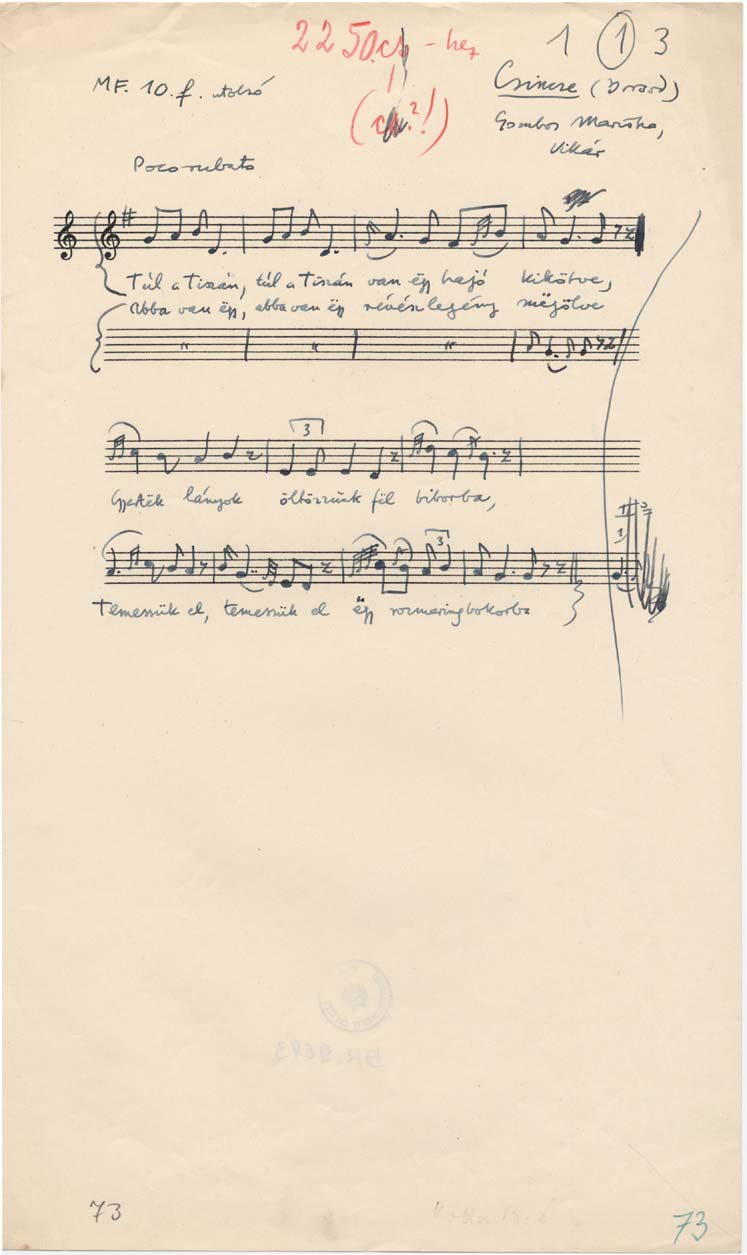 2250.cs – hez
1 1 3
MF. 10. f. utolsó
(cs.?!)
Csincse (Borsod)
Gombos Mariska,
Vikár
Poco rubato
Túl a Tiszán, túl a Tiszán van ëgy hajó kikötve,
Abba van ëgy, abba van ëgy révészlegény mëgölve
3
Gyertëk lányok öltözzünk fël biborba,
3
1 2
Temessük el, temessük el ëgy rozmaringbokorba
BR. 9693
73
73